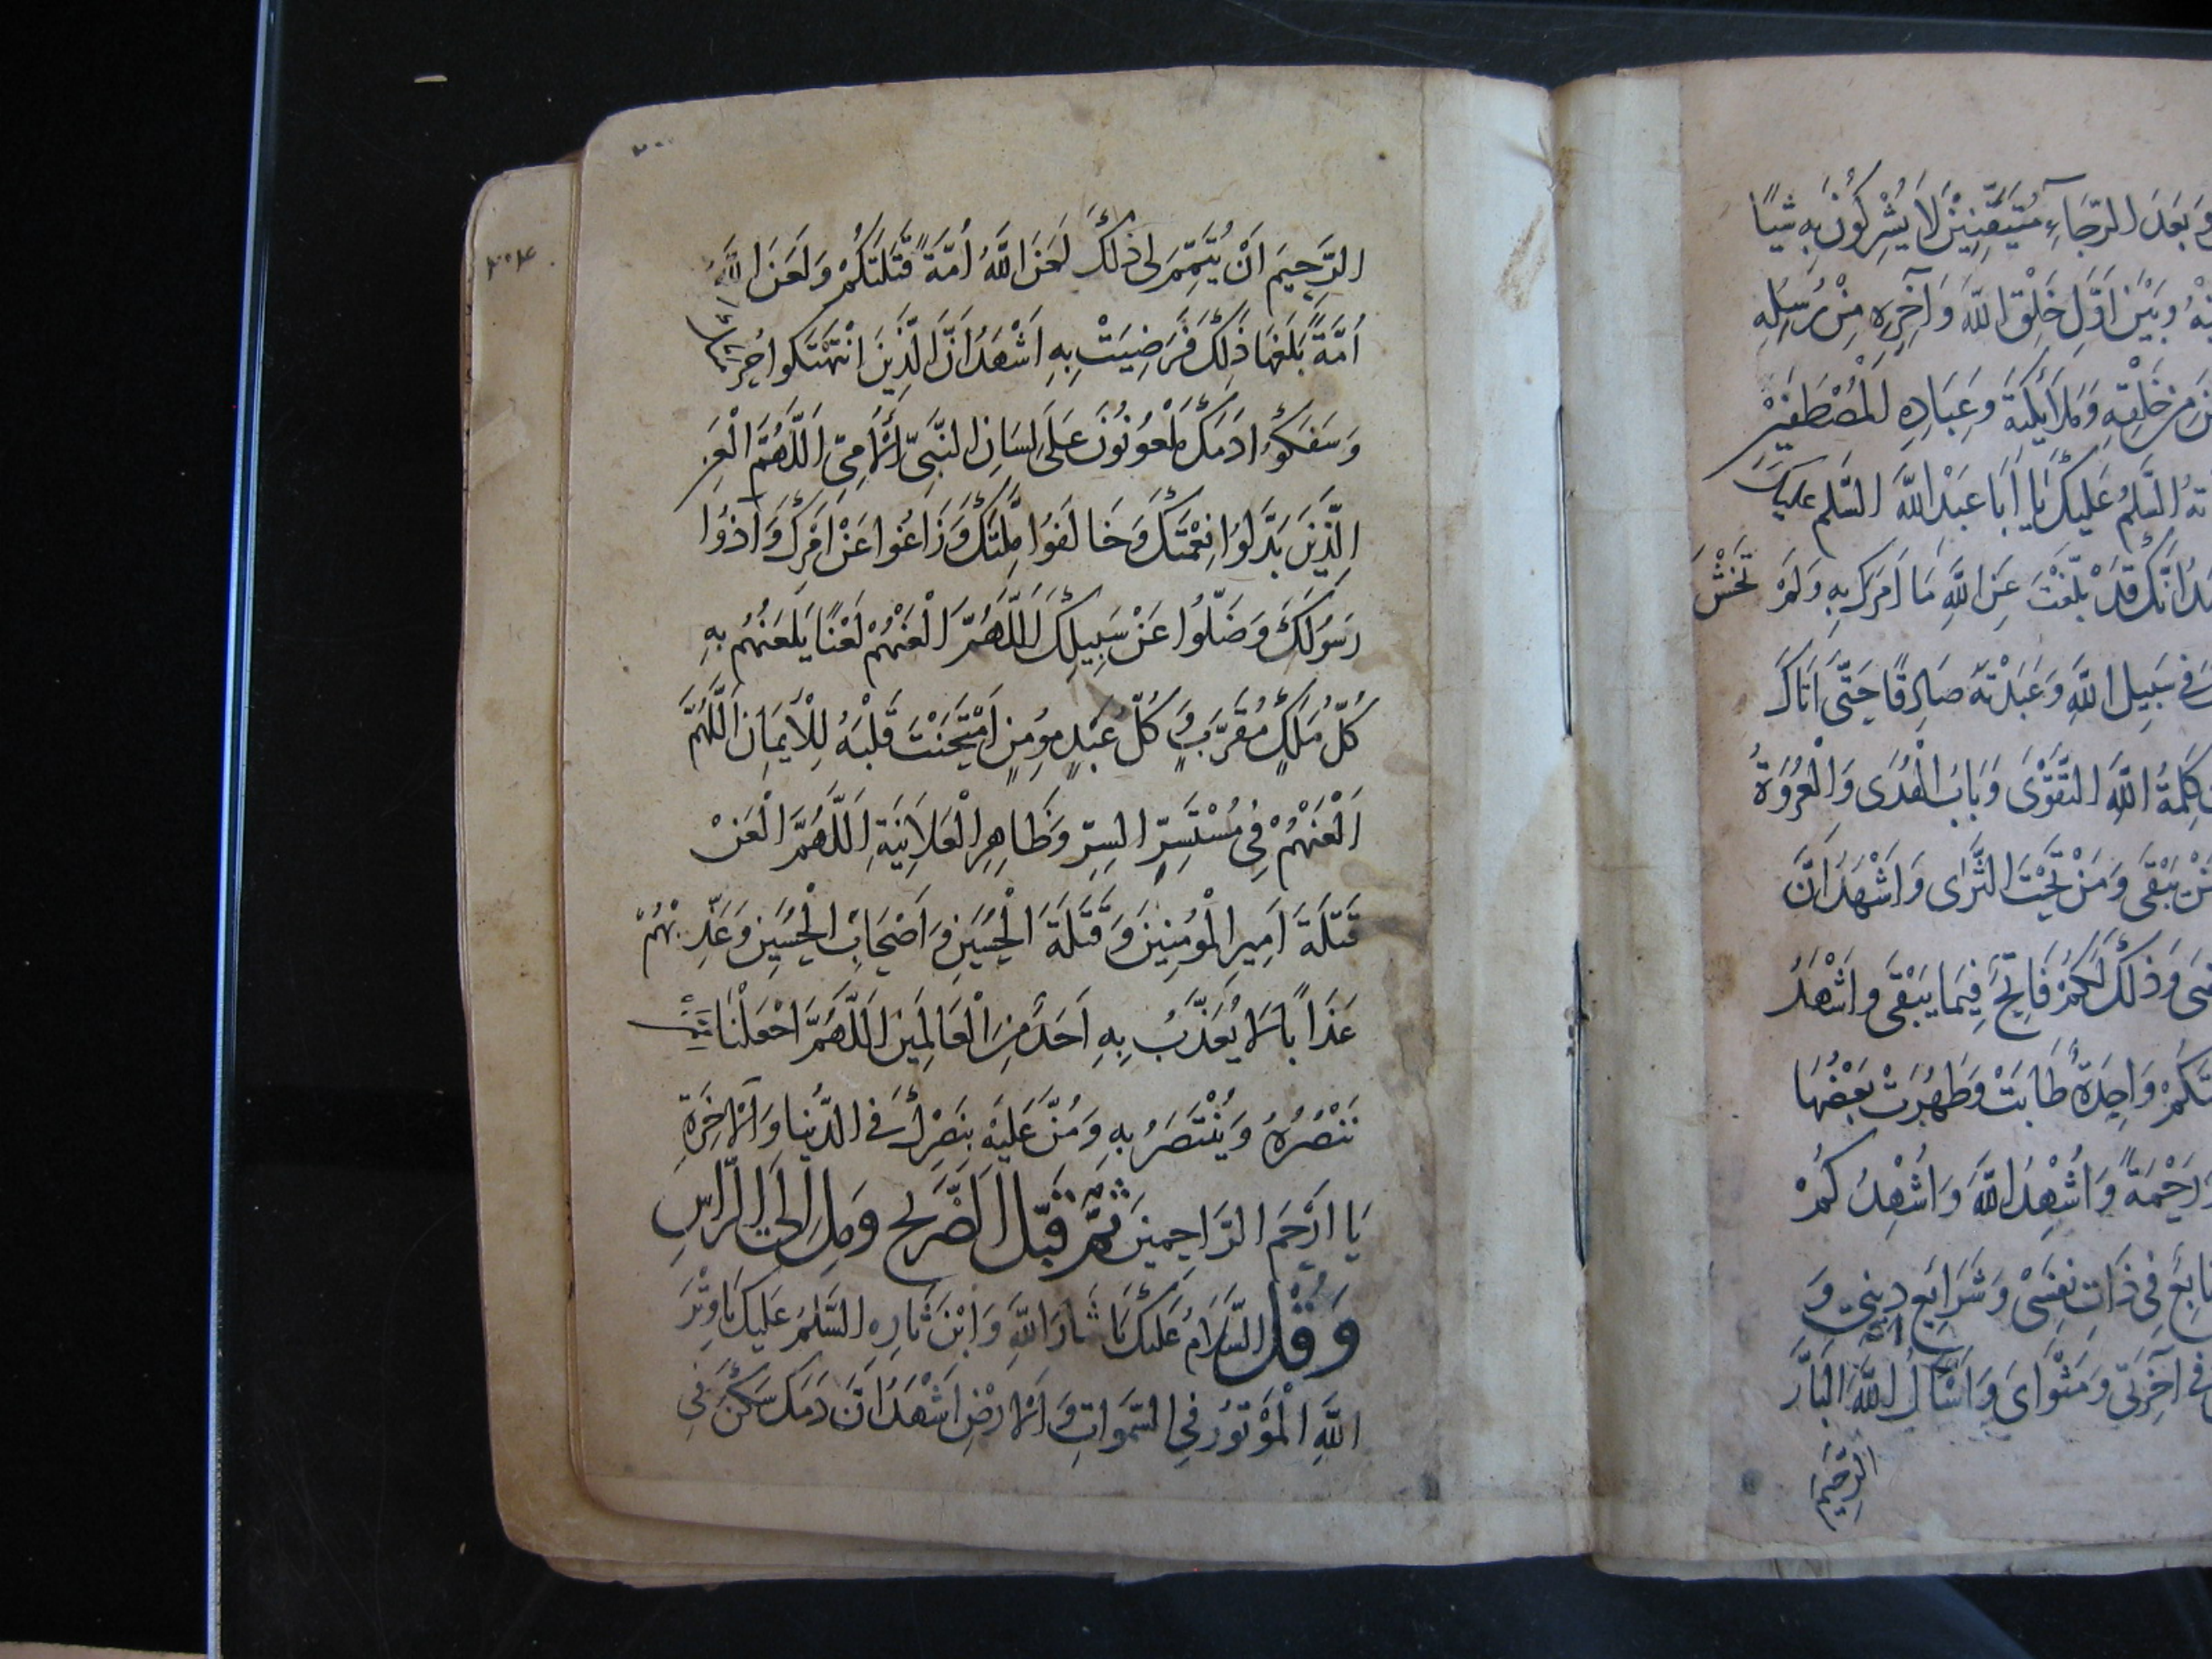 بَعْدَ الرَّجَاءِ مُتَيَقِّنِيْنَ لَا يُشْرِكُوْنَ بِهِ شَيْـًٔا
وَبَيْنَ اَوَّلِ خَلْقِ اللهِ وَآخِرِهِ مِنْ رُسُلِهِ
مِنْ خَلْقِهِ وَمَلَائِكَتِهِ وَعِبَادِهِ الْمُصْطَفَيْنَ
السَّلٰمُ عَلَيْكَ يَا اَبَا عَبْدِ اللهِ السَّلٰم عليكَ
اَنَّكَ قَدْ بَلَّغْتَ عَنِ اللهِ مَا اَمَرَكَ بِهِ وَلَمْ تَخْشَ
فِى سَبِيلِ اللهِ وَعَبَدْتَهُ صَادِقًا حَتّٰى اَتَاكَ
كَلِمَةُ اللهِ التَّقْوٰى وَبَابُ الْهُدٰى وَالْعُرْوَةُ
يَبْقٰى وَمَنْ تَحْتَ الثَّرٰى وَاَشْهَدُ اَنَّ
وَذٰلِكَ لَكُمْ فَاتِحٌ فِيمَا يَبْقٰى وَاَشْهَدُ
وَاحِدَةٌ طَابَتْ وَطَهُرَتْ بَعْضُهَا
وَرَحْمَةً وَاُشْهِدُ اللهَ وَاُشْهِدُكُمْ
تَابِعٌ فِى ذَاتِ نَفْسِىْ وَشَرَايِعِ دِينِىْ وَ
فِى آخِرَتِى وَمَثْوَاىَ وَاَسْاَلُ اللهَ الْبَارَّ
الرَّحِيْمَ
٣٠٠
٣٠٤
الرَّحِيمَ اَنْ يُتَمِّمَ لِى ذٰلِكَ لَعَنَ اللهُ اُمَّةً قَتَلَتْكُمْ وَلَعَنَ اللهُ
اُمَّةً بَلَغَهَا ذٰلِكَ فَرَضِيَتْ بِهِ اَشْهَدُ اَنَّ الَّذِينَ انْتَهَكُوا حُرْمَتَكَ
وَسَفَكُوا دَمَكَ مَلْعُوْنُوْنَ عَلٰى لِسَانِ النَّبِىِّ الْاُمِّىِّ اَللّٰهُمَّ الْعَنِ
الَّذِينَ بَدَّلُوا نِعْمَتَكَ وَخَالَفُوا مِلَّتَكَ وَزَاغُوا عَنْ اَمْرِكَ وَآذَوْا
رَسُوْلَكَ وَضَلُّوا عَنْ سَبِيلِكَ اَللّٰهُمَّ الْعَنْهُمْ لَعْنًا يَلْعَنُهُمْ بِهِ
كُلُّ مَلَكٍ مُقَرَّبٍ وَكُلُّ عَبْدٍ مُؤمِنٍ اَمْتَحَنْتَ قَلْبَهُ لِلْاِيمَانِ اَللّٰهُمَّ
اَلْعَنْهُمْ فِى مُسْتَسِرِّ السِّرِّ وَظَاهِرِ الْعَلَانِيَةِ اَللّٰهُمَّ الْعَنْ
قَتَلَةَ اَمِيرِ الْمُؤمِنِينَ وَقَتَلَةَ الْحُسَيْنِ وَاَصْحَابِ الْحُسَيْنِ وَعَذِّبْهُمْ
عَذَابًا لَا يُعَذَّبُ بِهِ اَحَدٌ مِنَ الْعَالَمِينَ اَللّٰهُمَّ اجْعَلْنَا مِمَّنْ
نَنْصُرُهُ وَيُنْتَصَرُ بِهِ وَمُنَّ عَلَيْهِ بِنَصْرِكَ فِى الدُّنْيَا وَالْآخِرَةِ
يَا اَرْحَمَ الرَّاحِمِينَ ثُمَّ قَبِّلِ الضَّرِيْحَ وَمِلْ اِلَى الرَّاسِ
وَقُلْ السَّلَامُ عَلَيْكَ يَا ثَارَ اللهِ وَابْنَ ثَارِهِ السَّلٰمُ عَلَيْكَ يَا وِتْرَ
اللهِ الْمَوْتُوْرَ فِى السَّمٰوَاتِ وَالْاَرْضِ اَشْهَدُ اَنَّ دَمَكَ سَكَنَ فِى